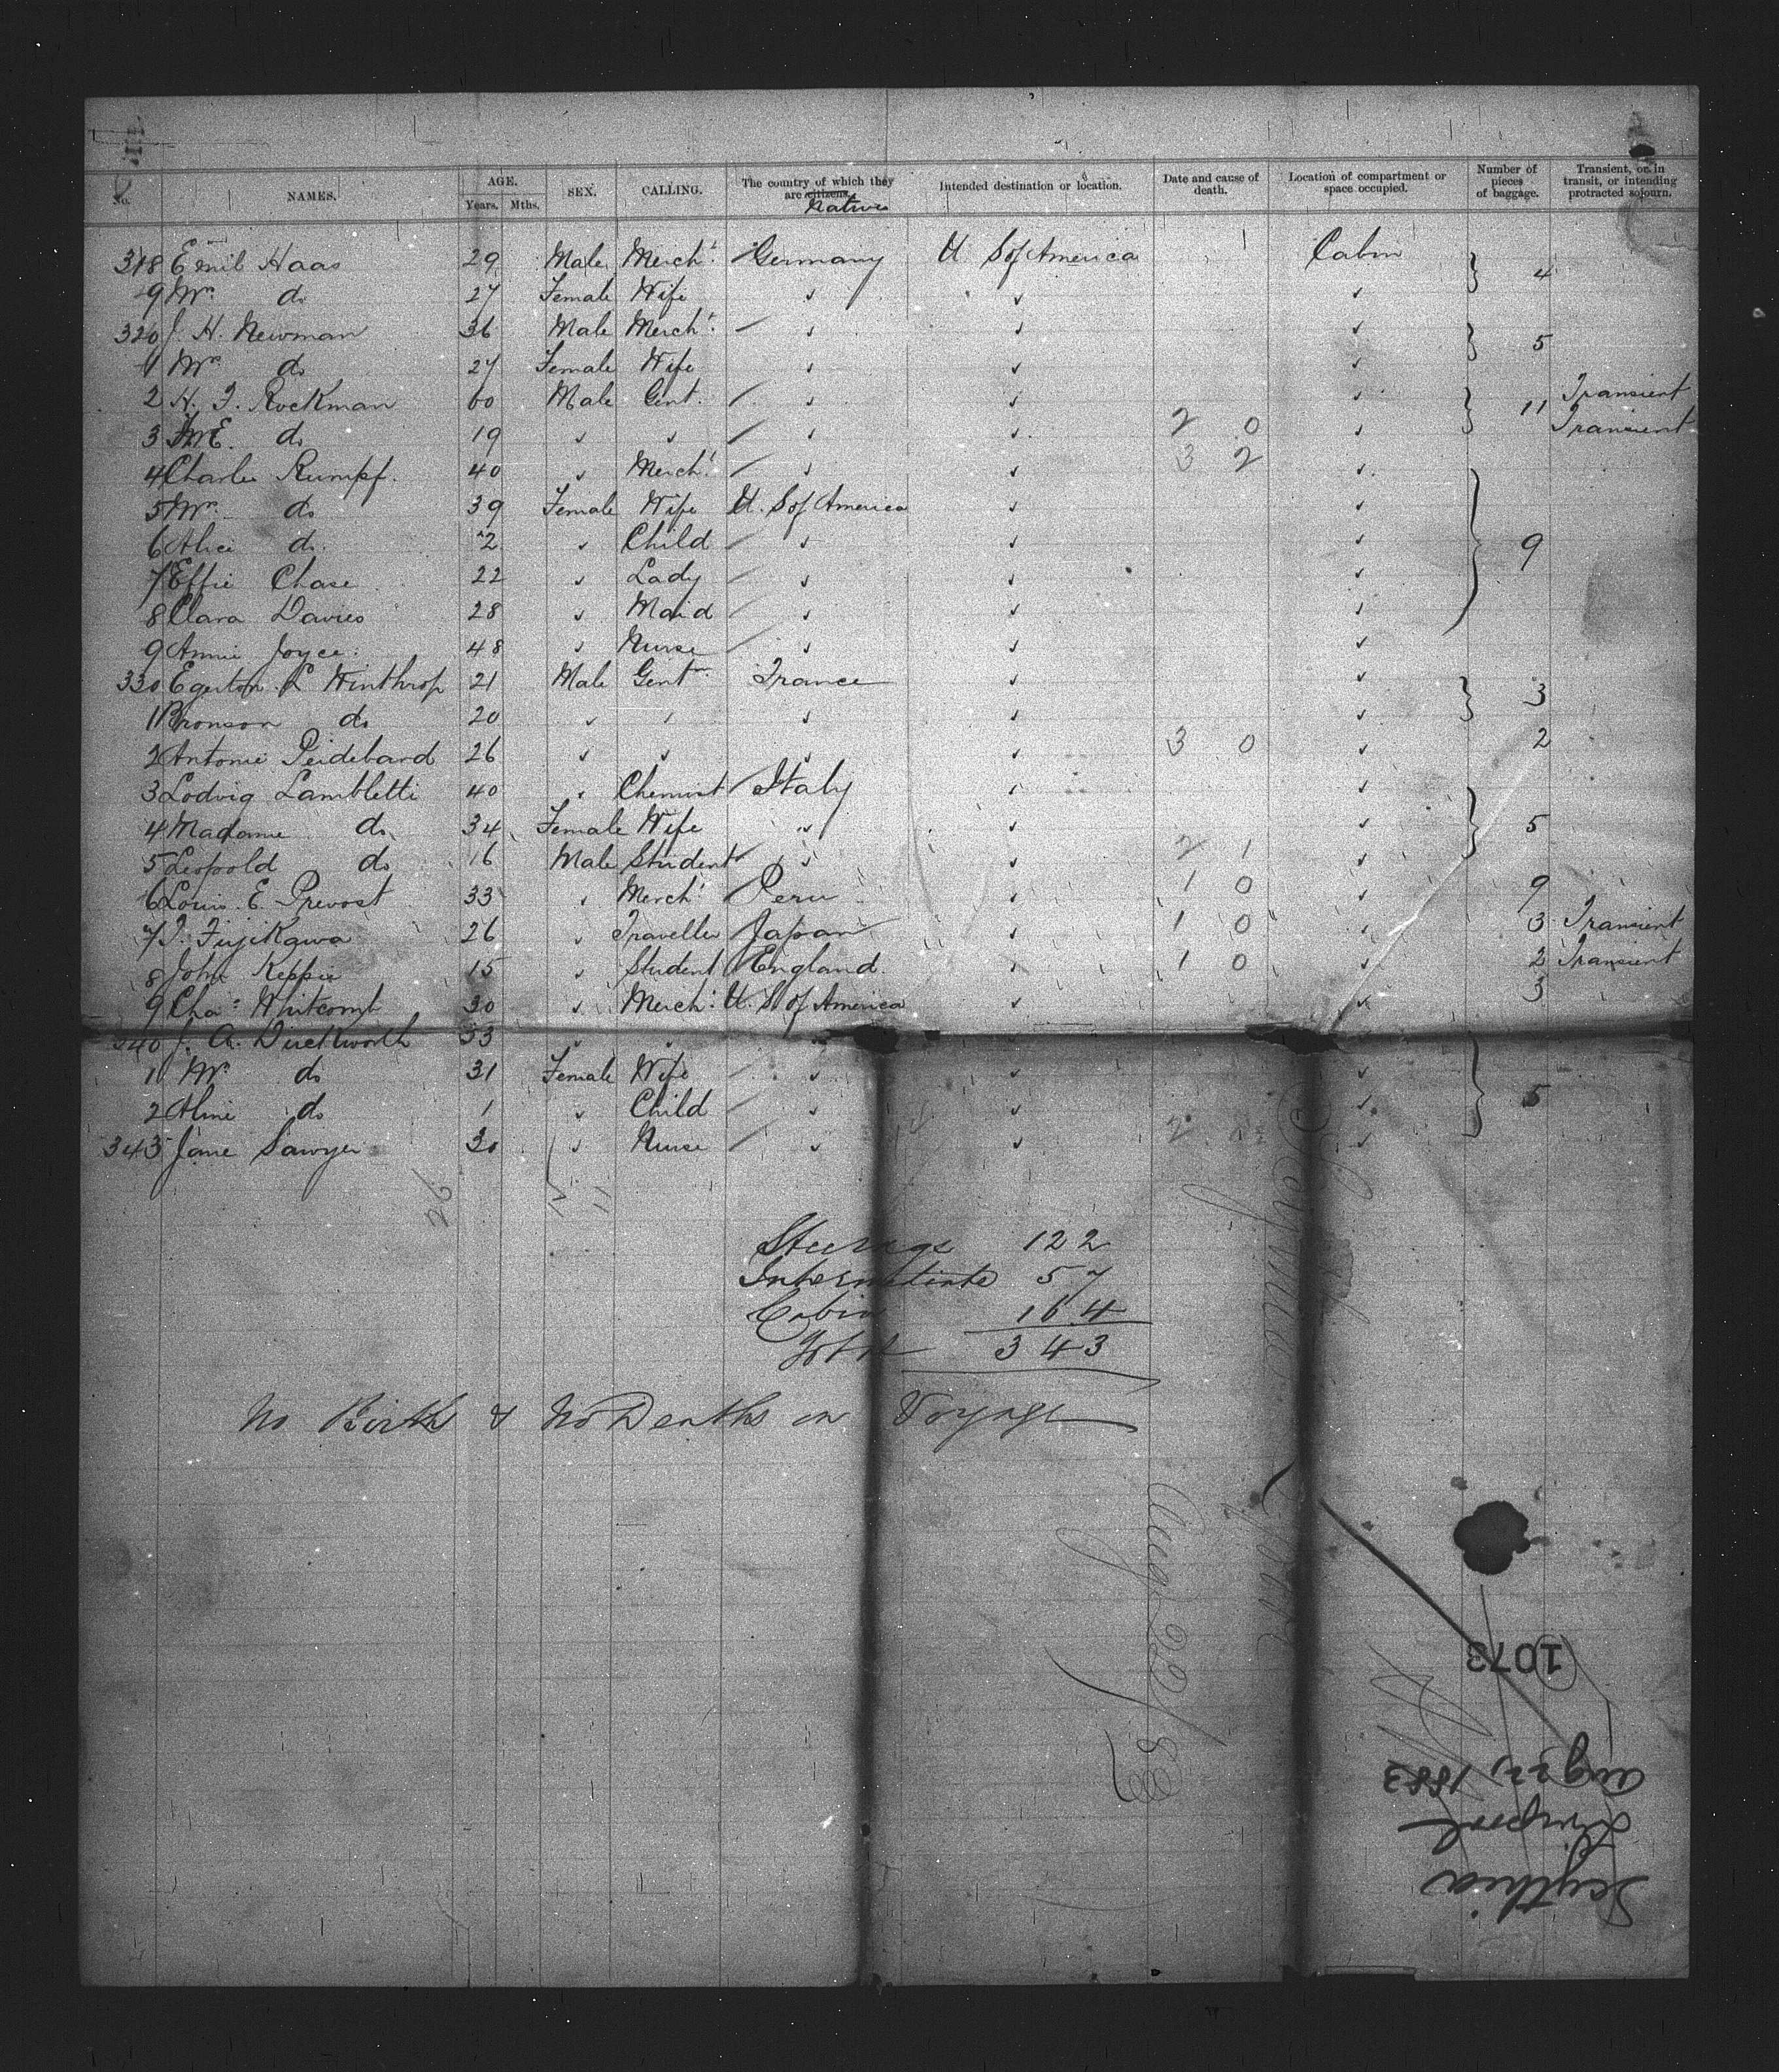 No. NAMES. AGE. Years. Mths. SEX. CALLING. The country of which they are citizens. Natives Intended destination or location. Date and cause of death. Location of compartment or space occupied. Number of pieces of baggage. Transient, or in transit, or intending protracted sojourn.
318 Emil Haas 29 Male Mercht Germany U S of America Cabin 4
9 Mrs do 27 Female Wife
320 J. H. Newman 36 Male Mercht 5
1 Mrs do 27 Female Wife
2 H. J. Rockman 60 Male Gent. 11 Transient
3 do 19 2 0 Transient
4 Charles Rumpf. 40 Mercht 3 2
5 Mrs do 39 Female Wife U. S of America
6 Alice do. 2 Child 9
7 Effie Chase 22 Lady
8 Clara Davies 28 Maid
9 Annie Joyce. 48 Nurse
330 Egerton L Winthrop 21 Male Gent France 3
1 Bronson do 20
2 Antonie Peidebard 26 3 0 2
3 Lodvig Lambletti 40 Chemist Italy
4 Madame do 34 Female Wife 5
5 Leopold do 16 Male Student 2 1
6 Louis. E. Prevost 33 Mercht Peru 1 0 9
7 J. Fujikawa 26 Traveller Japan 1 0 3 Transient
8 John Keppie 15 Student England. 1 0 2 Transient
9 Chas Whitcomb 30 Mercht U. S of America 3
340 J. A. Duckworth 33
1 Mrs do 31 Female Wife
2 Aline do 1 Child 5
343 Jane Sawyer 30 Nurse 2
26 11
Steerage 122
Intermediate 57
Cabin 164
Total 343
No Birth & No Deaths on Voyage
Aug 22/83
1073
Aug 22, 1883
Liverpool
Scythia